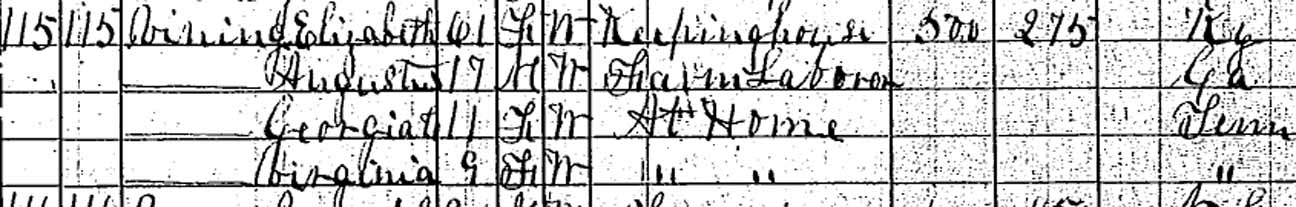 115 115 Vining, Elizabeth 61 F W Keeping house 500 275 Ky
Augustus 17 M W Farm Laborer Ga
Georgia 11 F W At Home Tenn
Virginia 9 F W " " "